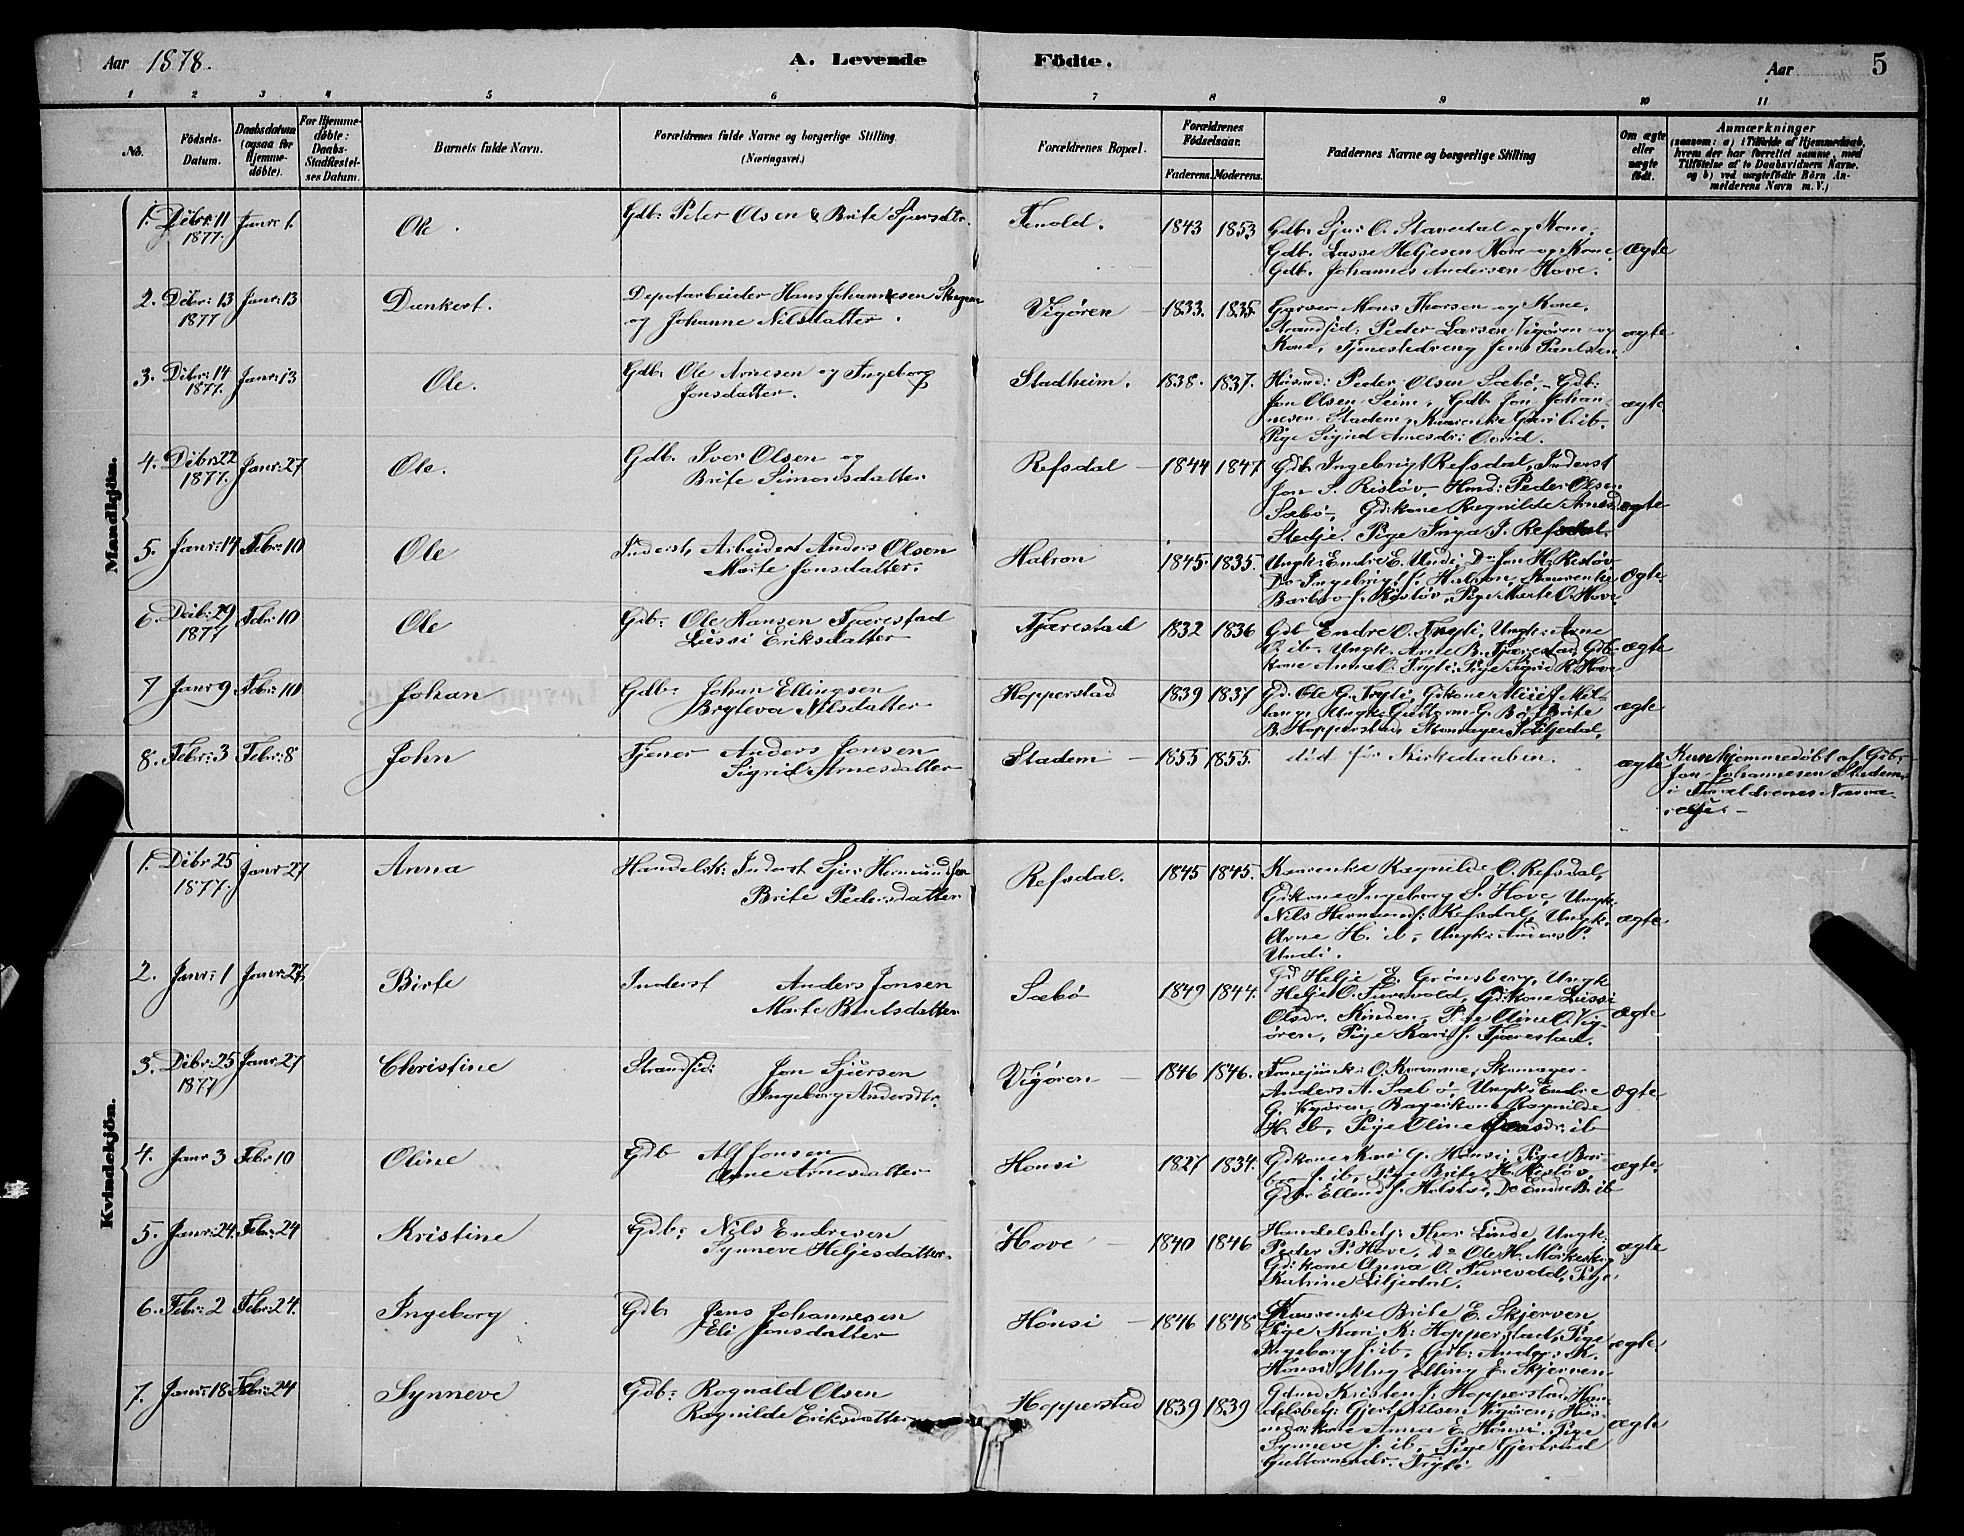 Aar 1878. A. Levende Födte. Aar 5
1 2 3 4 5 6 7 8 9 10 11
No. Födsels-Datum. Daabsdatum (ogsaa for Hjemme-döbte). For Hjemme-döbte: Daabs-Stadfæstel-ses Datum. Barnets fulde Navn. Forældrenes fulde Navne og borgerlige Stilling. (Næringsvei.) Forældrenes Bopæl. Forældrenes Födselsaar. Faderens. Moderens. Faddernes Navne og borgerlige Stilling Om ægte eller uægte födt. Anmærkninger
Mandkjön.
1. Dcbr: 11 1877. Janr: 6. Ole. Gdb: Peter Olsen & Brite Sjursdtr. Tenold. 1843 1853 Gdb. Sjur O. Stavedal og Kone,
Gdb. Lasse Heljesen Hove og Kone
Gdb. Johannes Andersen Hove. ægte
2. Dcbr: 13 1877 Janr: 13 Dankert. Depotarbeider Hans Johannesen
og Johanne Nilsdatter. Vigøren 1833. 1835. Garver Mons Thorsen og Kone,
Strandsid: Peder Larsen Vigøren og
Kone, Tjenestedreng Jens Paulsen ægte
3. Dcbr: 14 1877. Janr: 13 Ole. Gdb. Ole Arnesen og Ingeborg
Jonsdatter. Stadheim. 1838. 1837. Husmd: Peder Olsen Sæbö, Gdb:
Jon Olsen Seim, Gdb. Jon Johan-
nesen Stadem, Kaarenke Guri O. ib.
Pige Sigrid Arnesdr: ægte
4. Dcbr: 22 1877. Janr: 27 Ole. Gdb. Iver Olsen og
Brite Simonsdatter. Refsdal 1844 1847 Gdb. Ingebrigt Refsdal, Inderst
Jon S. Risløv, Hmd: Peder Olsen
Sæbö, Gdkone Ragnilde Arnesd.
Stedje. Pige Inga I. Refsdal. ægte
5. Janr: 14 Febr: 10 Ole Inderst, Arbeider Anders Olsen
Marte Jonsdatter. Halron 1845. 1835. Ungk: Endre E. Undi, Do Jon H. Risløv
Do Ingebrigt J. Kaarenke
Barbro J. Risløv, Pige Marte O. Hove. Ægte
6. Dcbr: 29 1877 Febr: 10 Ole Gdb: Ole Hansen Tjærestad
Lussi Eriksdatter Tjærestad 1832 1836 Gdb Endre O. Tryti, Ungk: Arne
O. ib. Ungk. Arne B. Tjærestad, Gdb-
kone Anna O. Tryti, Pige Sigrid R. Hove ægte
7 Janr 9 Febr: 10 Johan Gdb: Johan Ellingsen
Bryteva Nilsdatter Hopperstad 1839 1837 Gd. Ole G. Tryti, Gdkone
Ungk: Guttorm G. Bö, Brite
B. Hopperstad, Skomager Liljedal, ægte
8. Febr: 3 Febr: 8 John Tjener Anders Jonsen
Sigrid Arnesdatter Stadem 1855 1855. död før Kirkedaaben. ægte Kun hjemmedøbt af Gdb.
Jon Johannesen Stadem
i Forældrenes Nærvæ-
relse.
Kvindekjön.
1. Dcbr 25 1877. Janr 27 Anna Handelsk: Inderst Sjur Hermundsen
Brite Pedersdatter Refsdal. 1845 1845. Kaarenke Ragnilde O. Refsdal,
Gdkone Ingeborg S. Hove, Ungk.
Nils Hermunds: Refsdal, Ungk.
Arne H. ib, Ungk: Anders P.
Undi. ægte
2. Janr: 1 Janr: 27 Birte Inderst Anders Jonsen
Marte Botolsdatter Sæbö 1849 1844. Gd. Helje E. Grönsberg, Ungk
Helje O. Turvold, Gdkone Lussi
Olsdr. Pige Oline O. Vig-
øren, Pige Kari J. Tjærestad. ægte
3. Dcbr: 25 1877 Janr: 27 Christine Strandsid: Jon Sjursen
Ingeborg Andersdtr. Vigøren 1846 1846. O. Kramme, Skomager
Anders A. Sæbö, Ungk: Endre
G. Vigøren, Bagerkone Ragnilde
H. ib, Pige Oline ib ægte
4. Janr 3 Febr 10 Oline Gdb Alf Jonsen
Anne Arnesdatter Hønsi 1827 1834. Gdkone Kari G. Hønsi, Pige Bar-
bro J. ib, Pige Brite H. Risløv,
Gdbr Ellend J. Do Endre B. ib ægte
5. Janr: 24. Febr: 24 Kristine Gdb: Nils Endresen
Synneve Heljesdatter. Hove 1840 1846 Handelsbetj: Thor Linde, Ungk.
Peder P. Hove, Do Ole H.
Gd: kone Anna O. Turvold, Pige
Katrine Liljedal. ægte
6. Febr: 2 Febr: 24. Ingeborg Gdb. Jens Johannesen
Eli Jonsdatter Hønsi 1846 1848 Kaarenke Brite E. Skjerven,
Pige Kari K: Hopperstad, Pige
Ingeborg J. ib, Gdb: Anders K.
Hønsi, Ung Elling E. Skjerven ægte
7. Janr: 18 Febr: 24 Synneve Gdb: Rognald Olsen
Ragnilde Eriksdatter Hopperstad 1839 1839 Gdmd Kristen J: Hopperstad, Han-
delsbetj: Gjert Nilsen Vigøren, Hus-
mdskone Anna E. Hønsi, Pige
Synneve J. ib, Pige Gjertrud
Guttormsdr. Tryti ægte